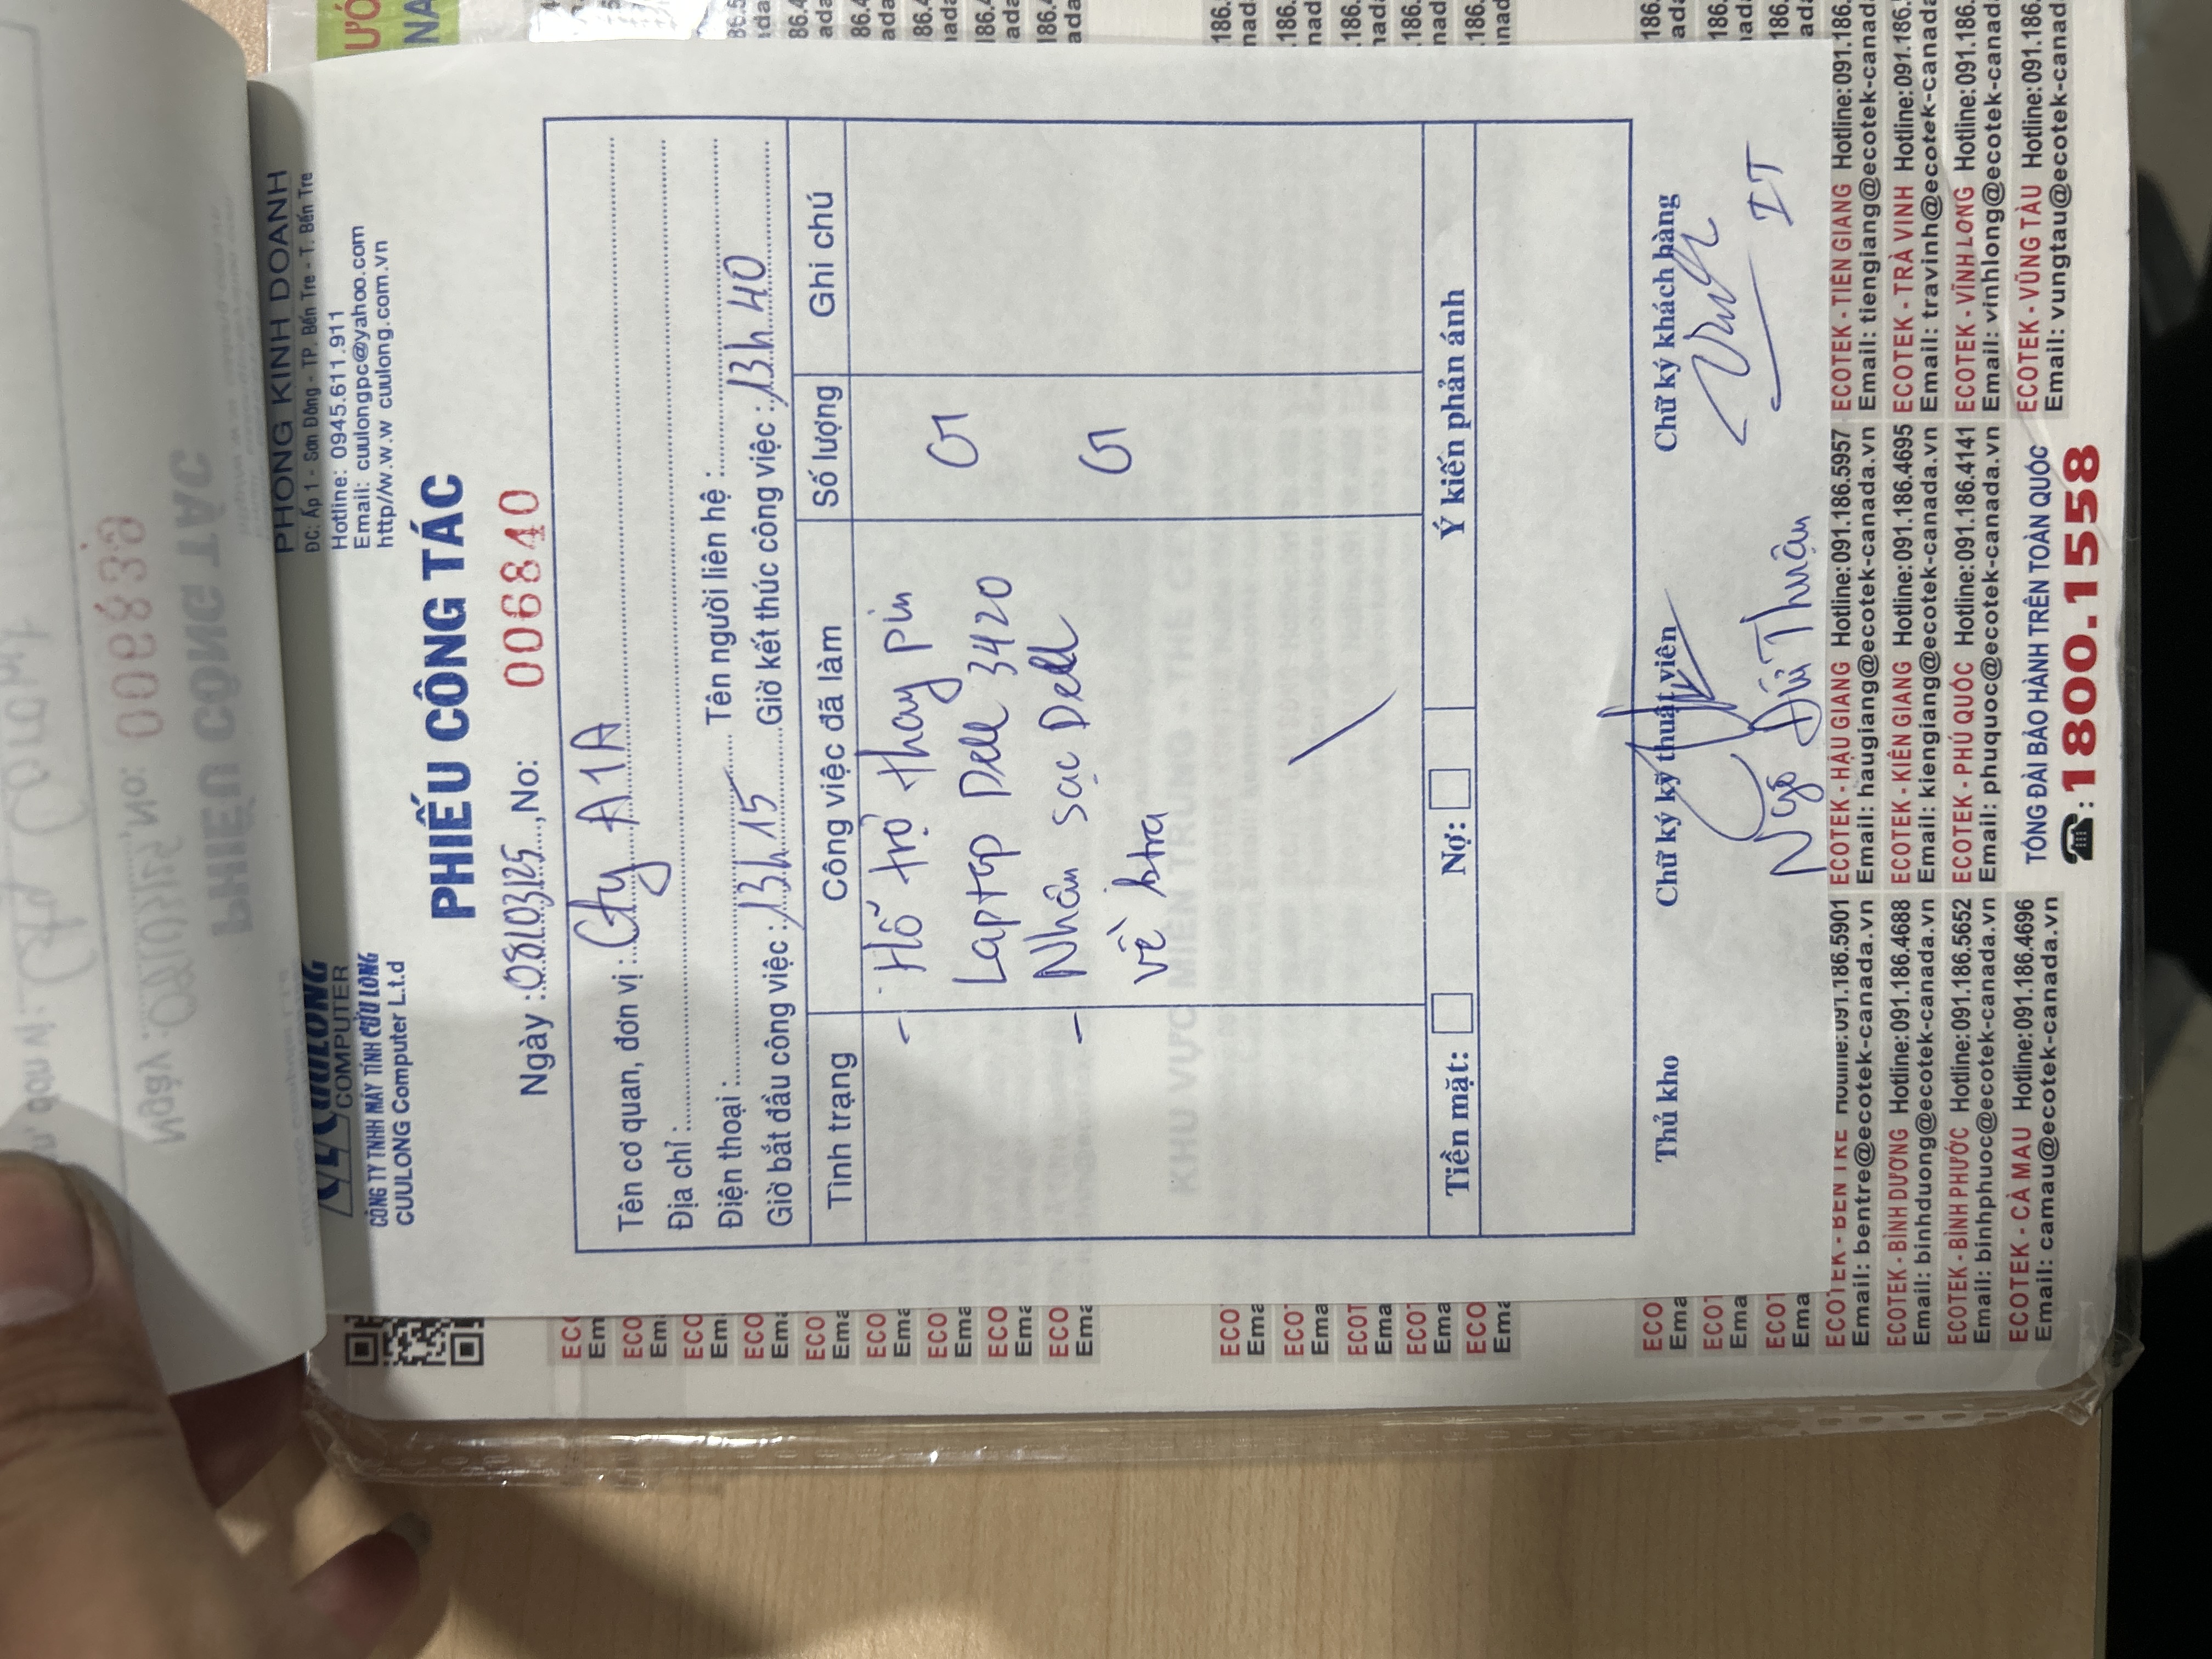 CUULONG
COMPUTER
CÔNG TY TNHH MÁY TÍNH CỬU LONG
CUULONG Computer L.t.d
PHÒNG KINH DOANH
ĐC: Ấp 1 - Sơn Đông - TP. Bến Tre - T. Bến Tre
Hotline: 0945.611.911
Email: cuulongpc@yahoo.com
http//w.w.w cuulong.com.vn
PHIẾU CÔNG TÁC
Ngày : 08/03/25, No: 006840
Tên cơ quan, đơn vị : Cty A1A
Địa chỉ :
Điện thoại : Tên người liên hệ :
Giờ bắt đầu công việc : 13h15 Giờ kết thúc công việc : 13h40
Tình trạng Công việc đã làm Số lượng Ghi chú
- Hỗ trợ thay pin
Laptop Dell 3420 01
- Nhân sạc Dell
về ktra 01
Tiền mặt: Nợ: Ý kiến phản ánh
Thủ kho Chữ ký kỹ thuật viên Chữ ký khách hàng
Ngô Đức Thuận
IT
ECOTEK - BẾN TRE Hotline:091.186.5901 ECOTEK - HẬU GIANG Hotline:091.186.5957 ECOTEK - TIỀN GIANG Hotline:091.186.
Email: bentre@ecotek-canada.vn Email: haugiang@ecotek-canada.vn Email: tiengiang@ecotek-canada
ECOTEK - BÌNH DƯƠNG Hotline:091.186.4688 ECOTEK - KIÊN GIANG Hotline:091.186.4695 ECOTEK - TRÀ VINH Hotline:091.186.
Email: binhduong@ecotek-canada.vn Email: kiengiang@ecotek-canada.vn Email: travinh@ecotek-canada
ECOTEK - BÌNH PHƯỚC Hotline:091.186.5652 ECOTEK - PHÚ QUỐC Hotline:091.186.4141 ECOTEK - VĨNH LONG Hotline:091.186.
Email: binhphuoc@ecotek-canada.vn Email: phuquoc@ecotek-canada.vn Email: vinhlong@ecotek-canad
ECOTEK - CÀ MAU Hotline:091.186.4696 ECOTEK - VŨNG TÀU Hotline:091.186.
Email: camau@ecotek-canada.vn Email: vungtau@ecotek-canad
TỔNG ĐÀI BẢO HÀNH TRÊN TOÀN QUỐC
☎:1800.1558